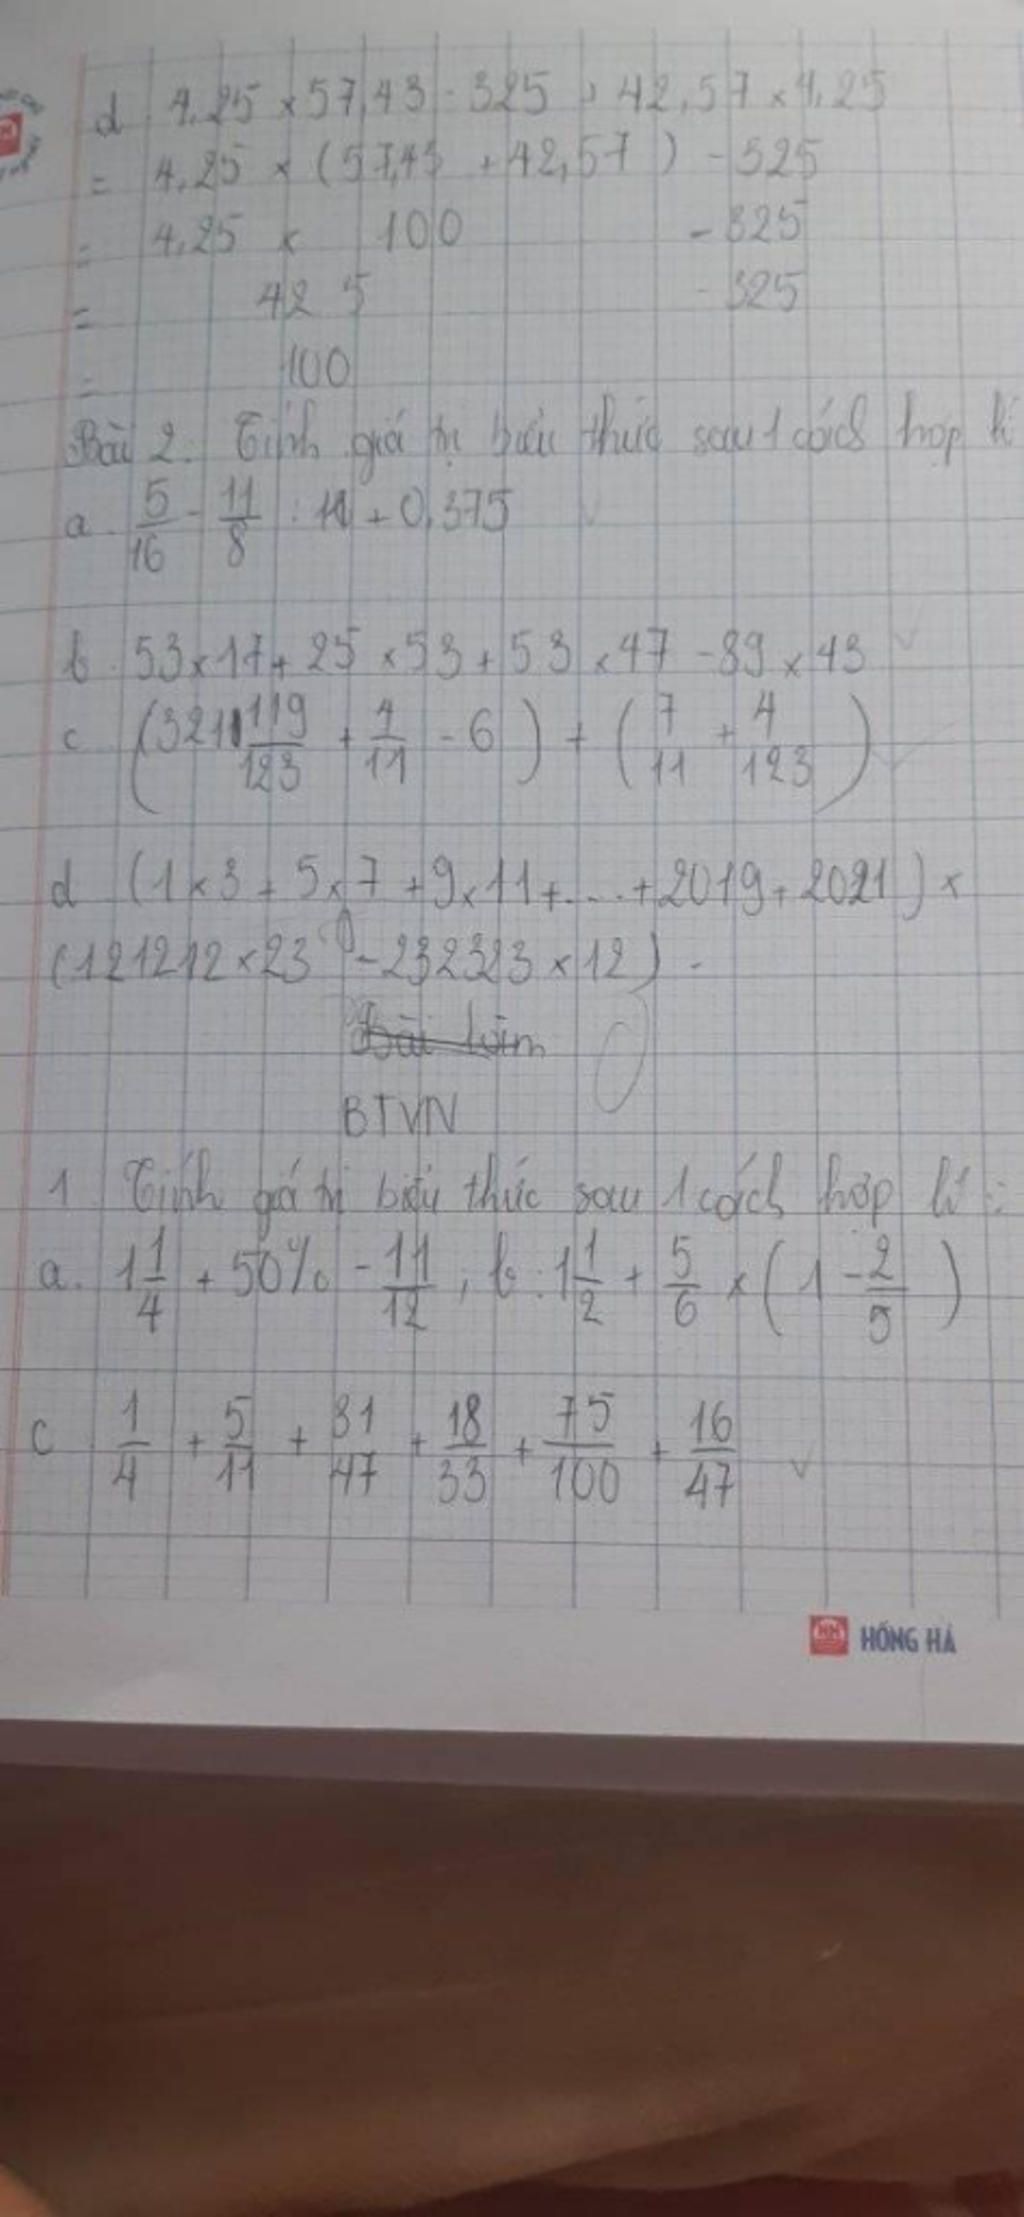 d. 4,25 × 57,43 - 325 + 42,57 × 4,25
= 4,25 × (57,43 + 42,57) - 325
= 4,25 × 100 - 325
= 425 - 325
= 100
Bài 2. Tính giá trị biểu thức sau 1 cách hợp lí
a. 5/16 - 11/8 : 11 + 0,375
b. 53 × 17 + 25 × 53 + 53 × 47 - 89 × 43
c (321 119/123 + 4/11 - 6) + (7/11 + 4/123)
d (1 × 3 + 5 × 7 + 9 × 11 + ... + 2019 + 2021) ×
(121212 × 23 - 232323 × 12) .
Bài làm
BTVN
1 Tính giá trị biểu thức sau 1 cách hợp lí :
a. 1 1/4 + 50% - 11/12 ; b. 1 1/2 + 5/6 × (1 - 2/5)
c 1/4 + 5/11 + 31/47 + 18/33 + 75/100 + 16/47
HỒNG HÀ